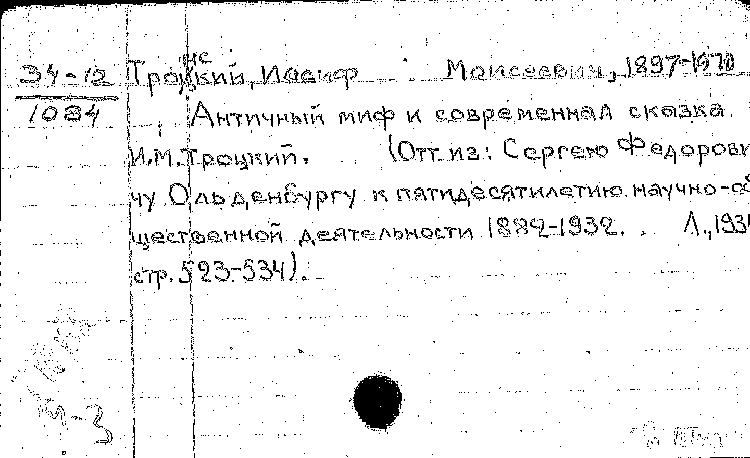 34-12 Троцкий, Иосиф Моисеевич, 1897-1970
нс
1084 Античный миф и современная сказка.
И.М.Троцкий. (Отт.из: Сергею Федорови
чу Ольденбургу к пятидесятилетию научно-об
щественной деятельности 1882-1932. Л., 1934
стр.523-534).